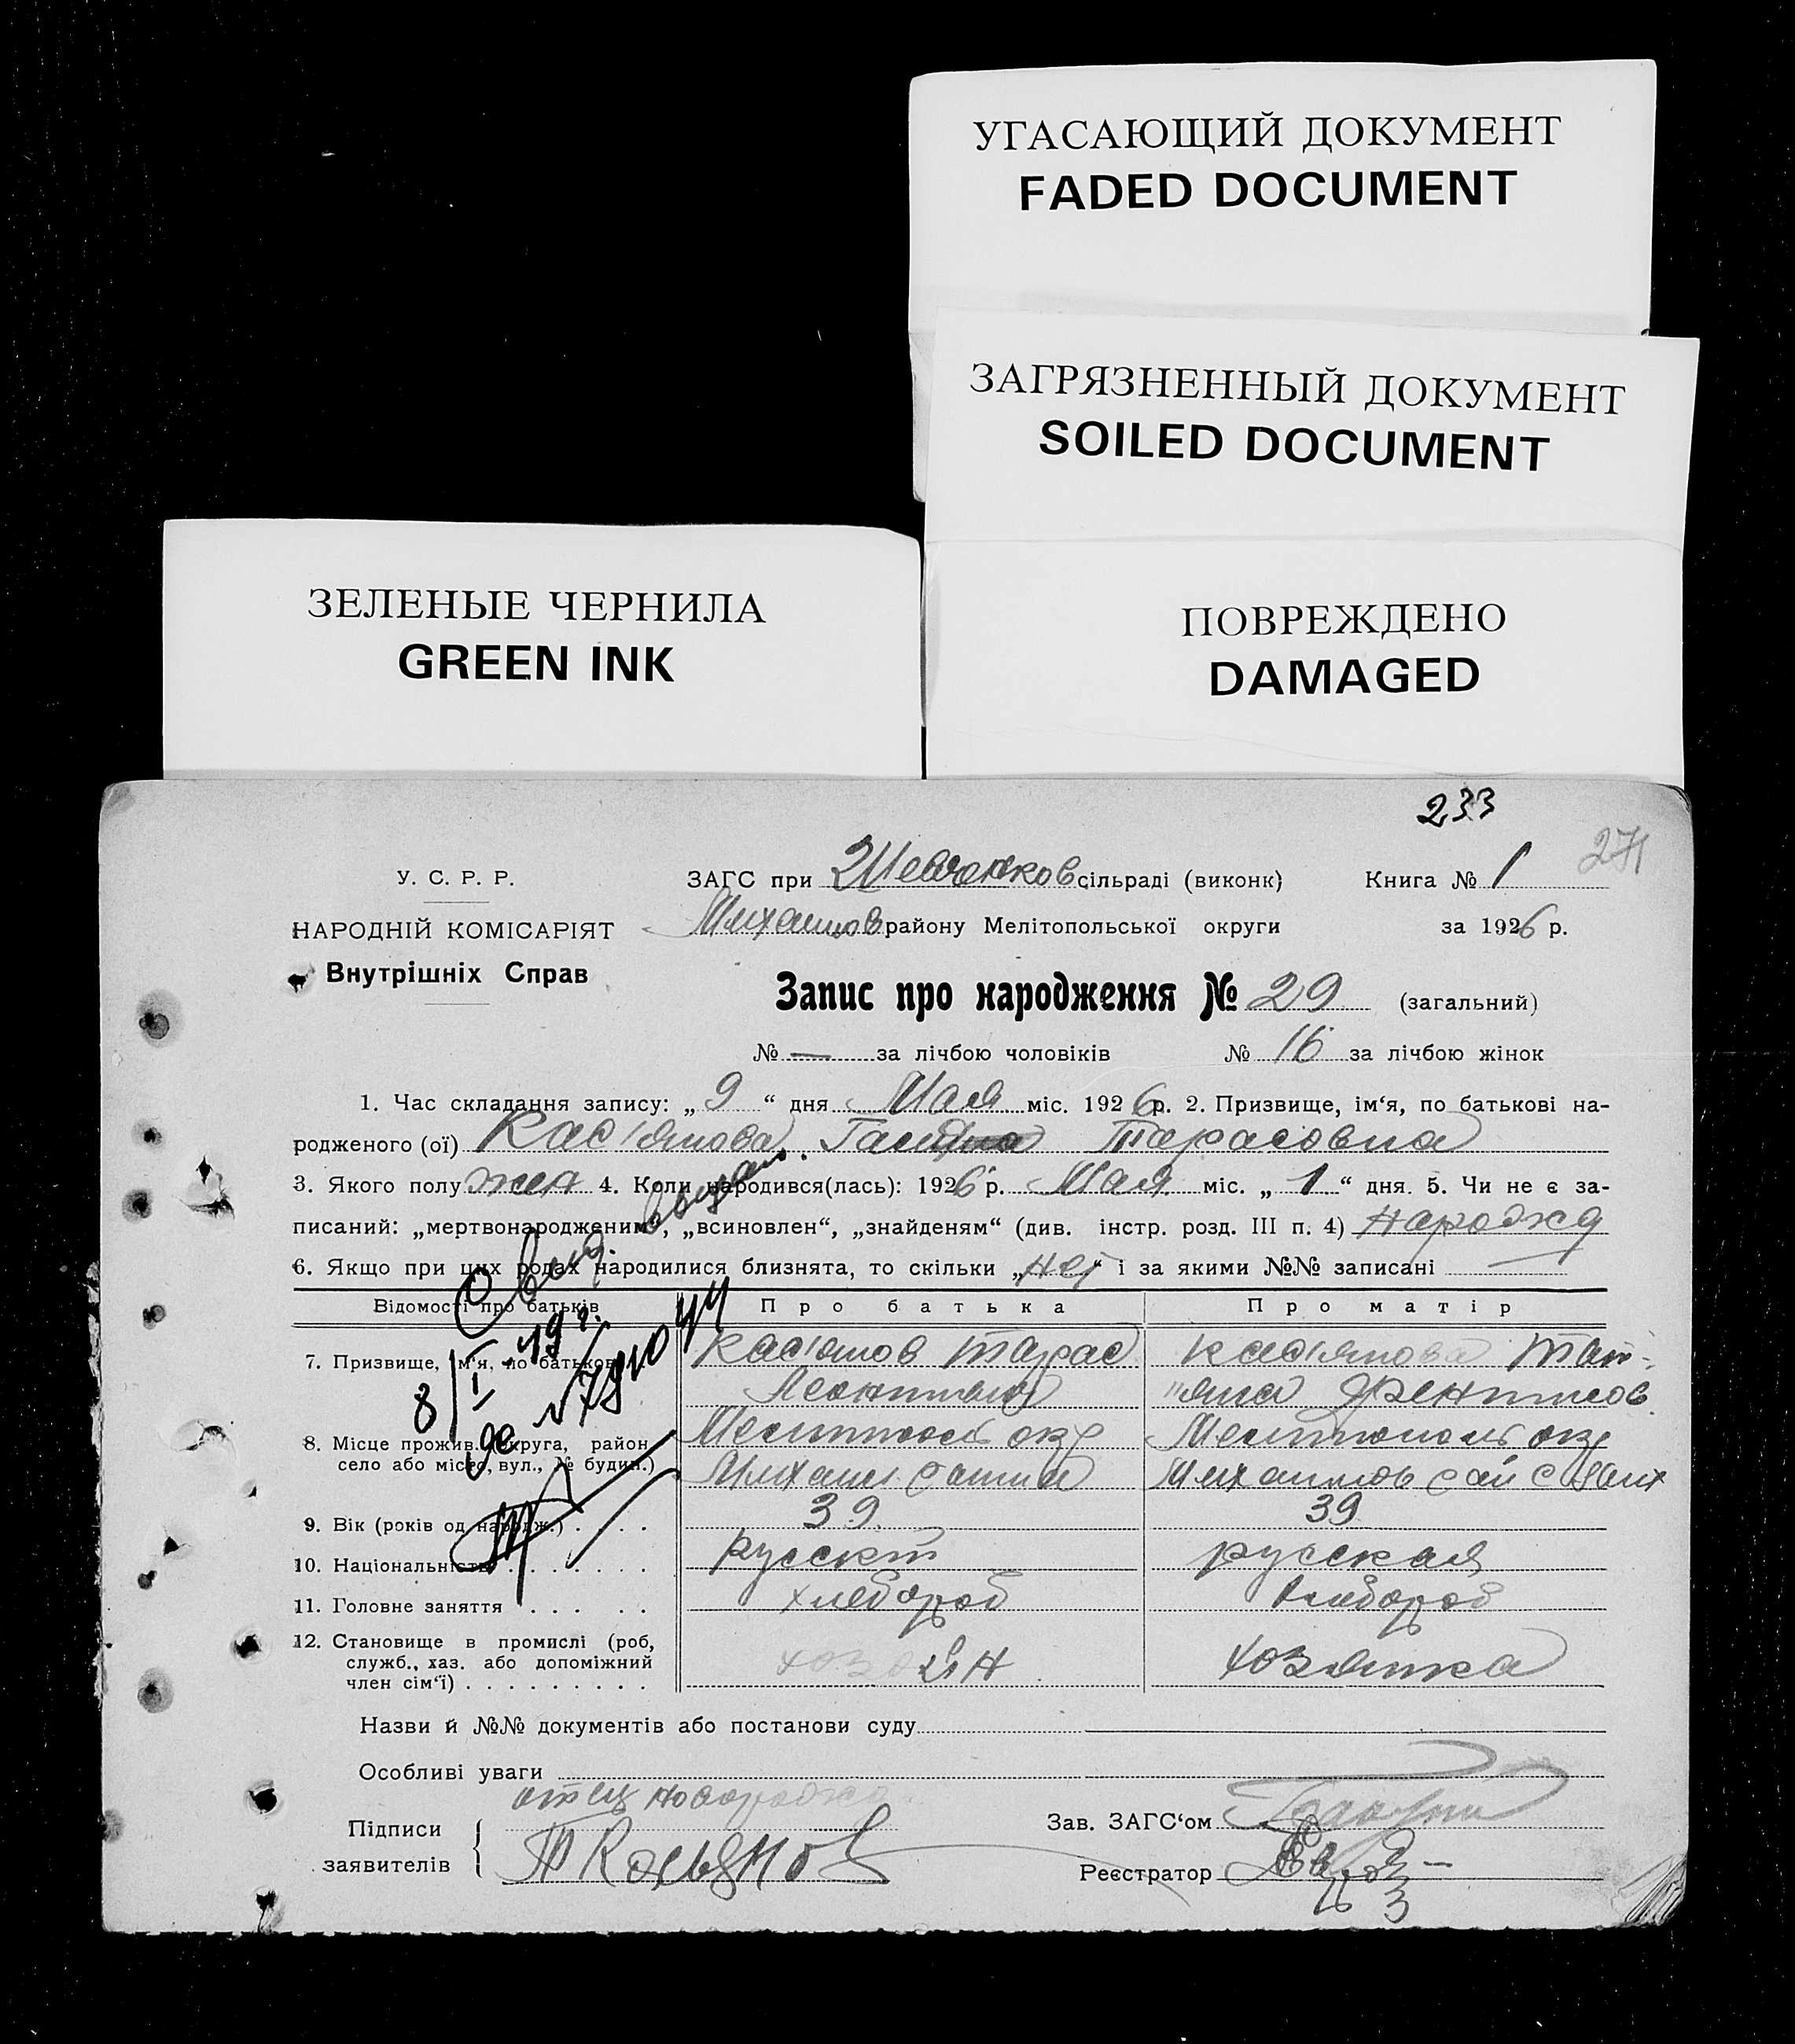 УГАСАЮЩИЙ ДОКУМЕНТ
FADED DOCUMENT
ЗАГРЯЗНЕННЫЙ ДОКУМЕНТ
SOILED DOCUMENT
ЗЕЛЕНЫЕ ЧЕРНИЛА
GREEN INK
ПОВРЕЖДЕНО
DAMAGED
233
271
У. С. Р. Р.
НАРОДНІЙ КОМІСАРІЯТ
Внутрішніх Справ
ЗАГС при Шевченков сільраді (виконк) Книга № 1
Михайлов району Мелітопольської округи за 1926 р.
Запис про народження № 29 (загальний)
№ — за лічбою чоловіків № 16 за лічбою жінок
1. Час складання запису: „ 9 “ дня Мая міс. 1926 р. 2. Призвище, ім‘я, по батькові на-
родженого (ої) Кас'янова Тарасовна
3. Якого полу жен 4. Коли народився(лась): 1926 р. Мая міс. „ 1 “ дня. 5. Чи не є за-
писаний: „мертвонародженим“, „всиновлен“, „знайденям“ (див. інстр. розд. III п. 4)
6. Якщо при цих родах народилися близнята, то скільки „ “ і за якими №№ записані —
Відомості про батьків Про батька Про матір
7. Призвище, ім‘я, по батькові Кас'янов Тарас Кас'янова Тать-
яна
8. Місце прожив. (округа, район, окр окр
село або місто, вул., № будин.)
9. Вік (років од народж.) . . . . 39 39
10. Національність . . . . . . . русский русская
11. Головне заняття . . . . . хлебороб хлебороб
12. Становище в промислі (роб,
служб., хаз. або допоміжний хозяин хозяйка
член сім‘ї) . . . . . . . . .
Назви й №№ документів або постанови суду
Особливі уваги
отец
Підписи Зав. ЗАГС‘ом
заявителів Т Касьянов Реєстратор